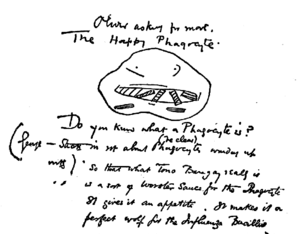 Oliver asking for more.
The Happy Phagocyte.
Do you know what a Phagocyte is?
(be clear)
is not about Phagocyte
So that what Tono Bungay really is
is a sort of Worcester Sauce for the Phagocyte
It gives it an appetite. It makes it a
perfect wolf for the Influenza Bacillus